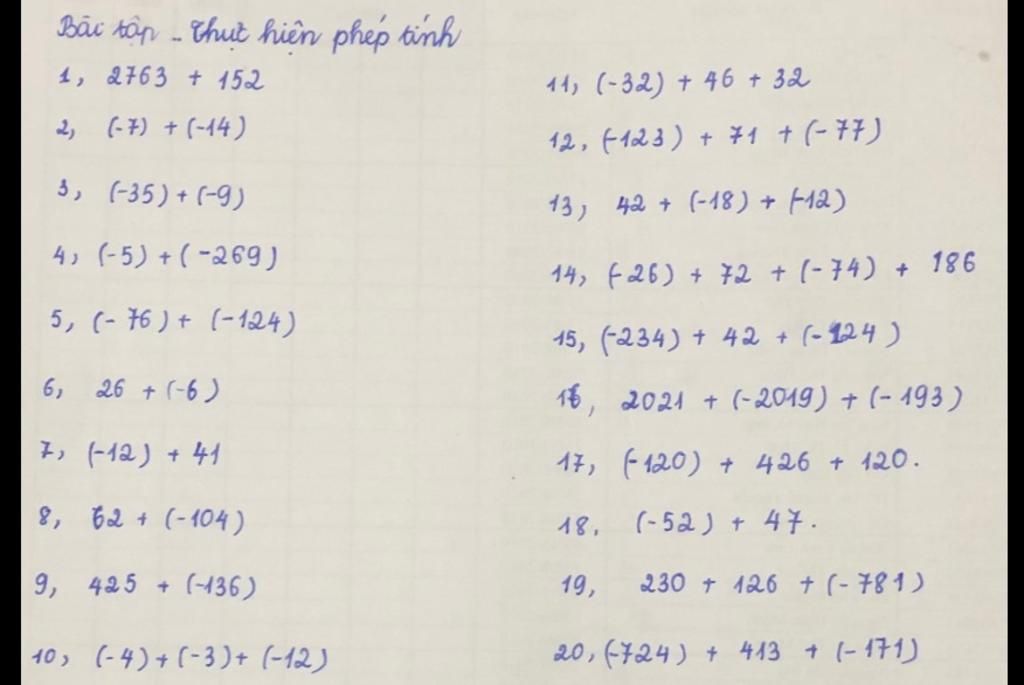 Bài tập - Thực hiện phép tính
1, 2763 + 152
2, (-7) + (-14)
3, (-35) + (-9)
4, (-5) + (-269)
5, (-76) + (-124)
6, 26 + (-6)
7, (-12) + 41
8, 62 + (-104)
9, 425 + (-136)
10, (-4) + (-3) + (-12)
11, (-32) + 46 + 32
12, (-123) + 71 + (-77)
13, 42 + (-18) + (-12)
14, (-26) + 72 + (-74) + 186
15, (-234) + 42 + (-124)
16, 2021 + (-2019) + (-193)
17, (-120) + 426 + 120.
18, (-52) + 47.
19, 230 + 126 + (-781)
20, (-724) + 413 + (-171)